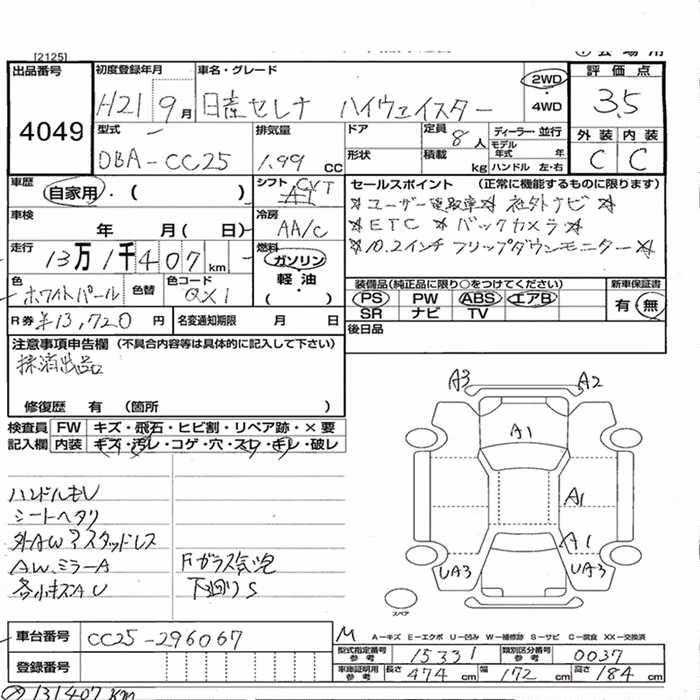 [2125]
出品番号
4049
初度登録年月
H21 9月
車名・グレード
日産セレナ ハイウェイスター
2WD
・
4WD
評価点
3.5
外装 内装
C C
型式
DBA-CC25
排気量
1.99 CC
ドア
形状
定員 8人
積載 kg
ディーラー・並行
モデル年式 年
ハンドル 左・右
車歴
自家用・( )
シフト CVT
AT
セールスポイント (正常に機能するものに限ります)
☆ユーザー買取車☆ 社外ナビ☆
☆ETC☆バックカメラ☆
☆10.2インチフリップダウンモニター☆
車検
年 月( 日)
冷房
AA/C
走行
13万1千407km
燃料
ガソリン
・
軽油
・
( )
色
ホワイトパール
色替
色コード
QX1
装備品(純正品に限り○をつけてください)
PS PW ABS エアB
SR ナビ TV
新車保証書
有 無
R券 ¥13,720円
名変通知期限 月 日
後日品
注意事項申告欄 (不具合内容等は具体的に記入して下さい)
抹消出品
修復歴 有 (箇所 )
検査員
記入欄
FW キズ・飛石・ヒビ割・リペア跡・×要
内装 キズ・汚レ・コゲ・穴・スレ・キレ・破レ
A3 A2
A1
A1
A1
UA3 UA3
スペア
ハンドルモレ
シートヘタリ
外AWスタッドレス
AWミラーA
各小キズAU
Fガラス気泡
下廻りS
車台番号 CC25-296067
登録番号
M A-キズ E-エクボ U-凹み W-補修跡 S-サビ C-腐食 XX-交換済
型式指定番号
参考
15331
類別区分番号
参考
0037
車庫証明用
参考
長さ 474cm 幅 172cm 高さ 184cm
131407KM